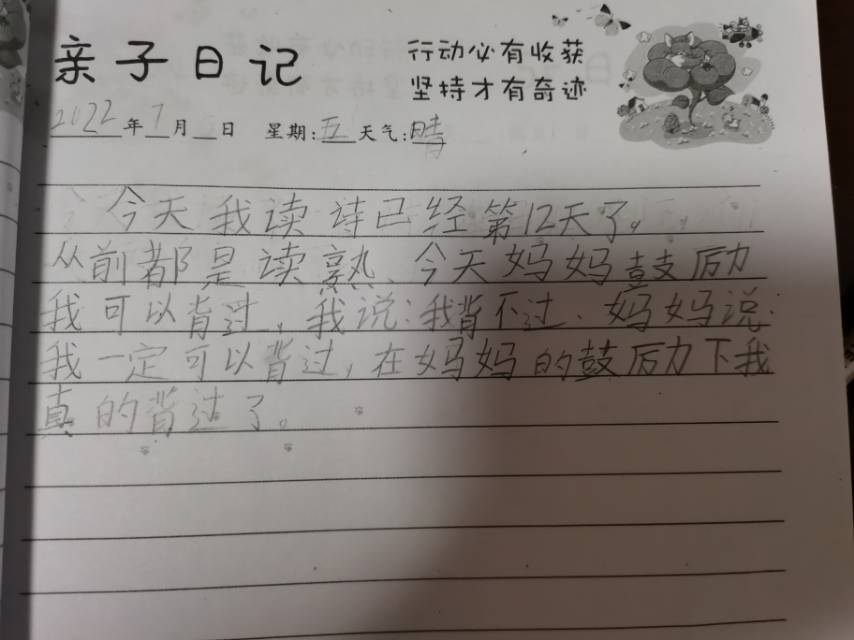 亲子日记
行动必有收获
坚持才有奇迹
2022年7月 日 星期:五 天气:晴
今天我读诗已经第12天了。
从前都是读熟、今天妈妈鼓励
我可以背过,我说:我背不过、妈妈说:
我一定可以背过,在妈妈的鼓励下我
真的背过了。